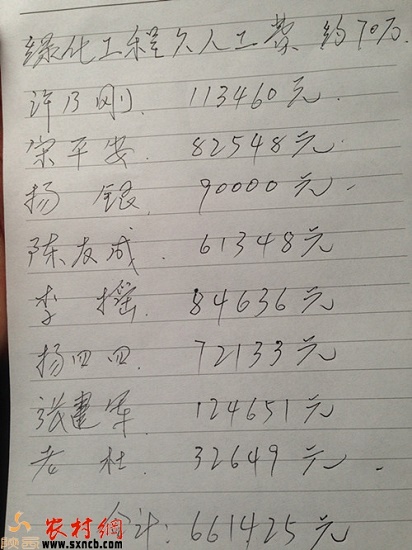 绿化工程欠人工费 约70万.
许乃刚. 113460元.
宋平安. 82548元.
杨银. 90000元.
陈友成. 61348元
李摇. 84636元.
杨四四. 72133元
张建军. 124651元
老杜. 32649元.
合计: 661425元
陕西 农村網
www.sxncb.com